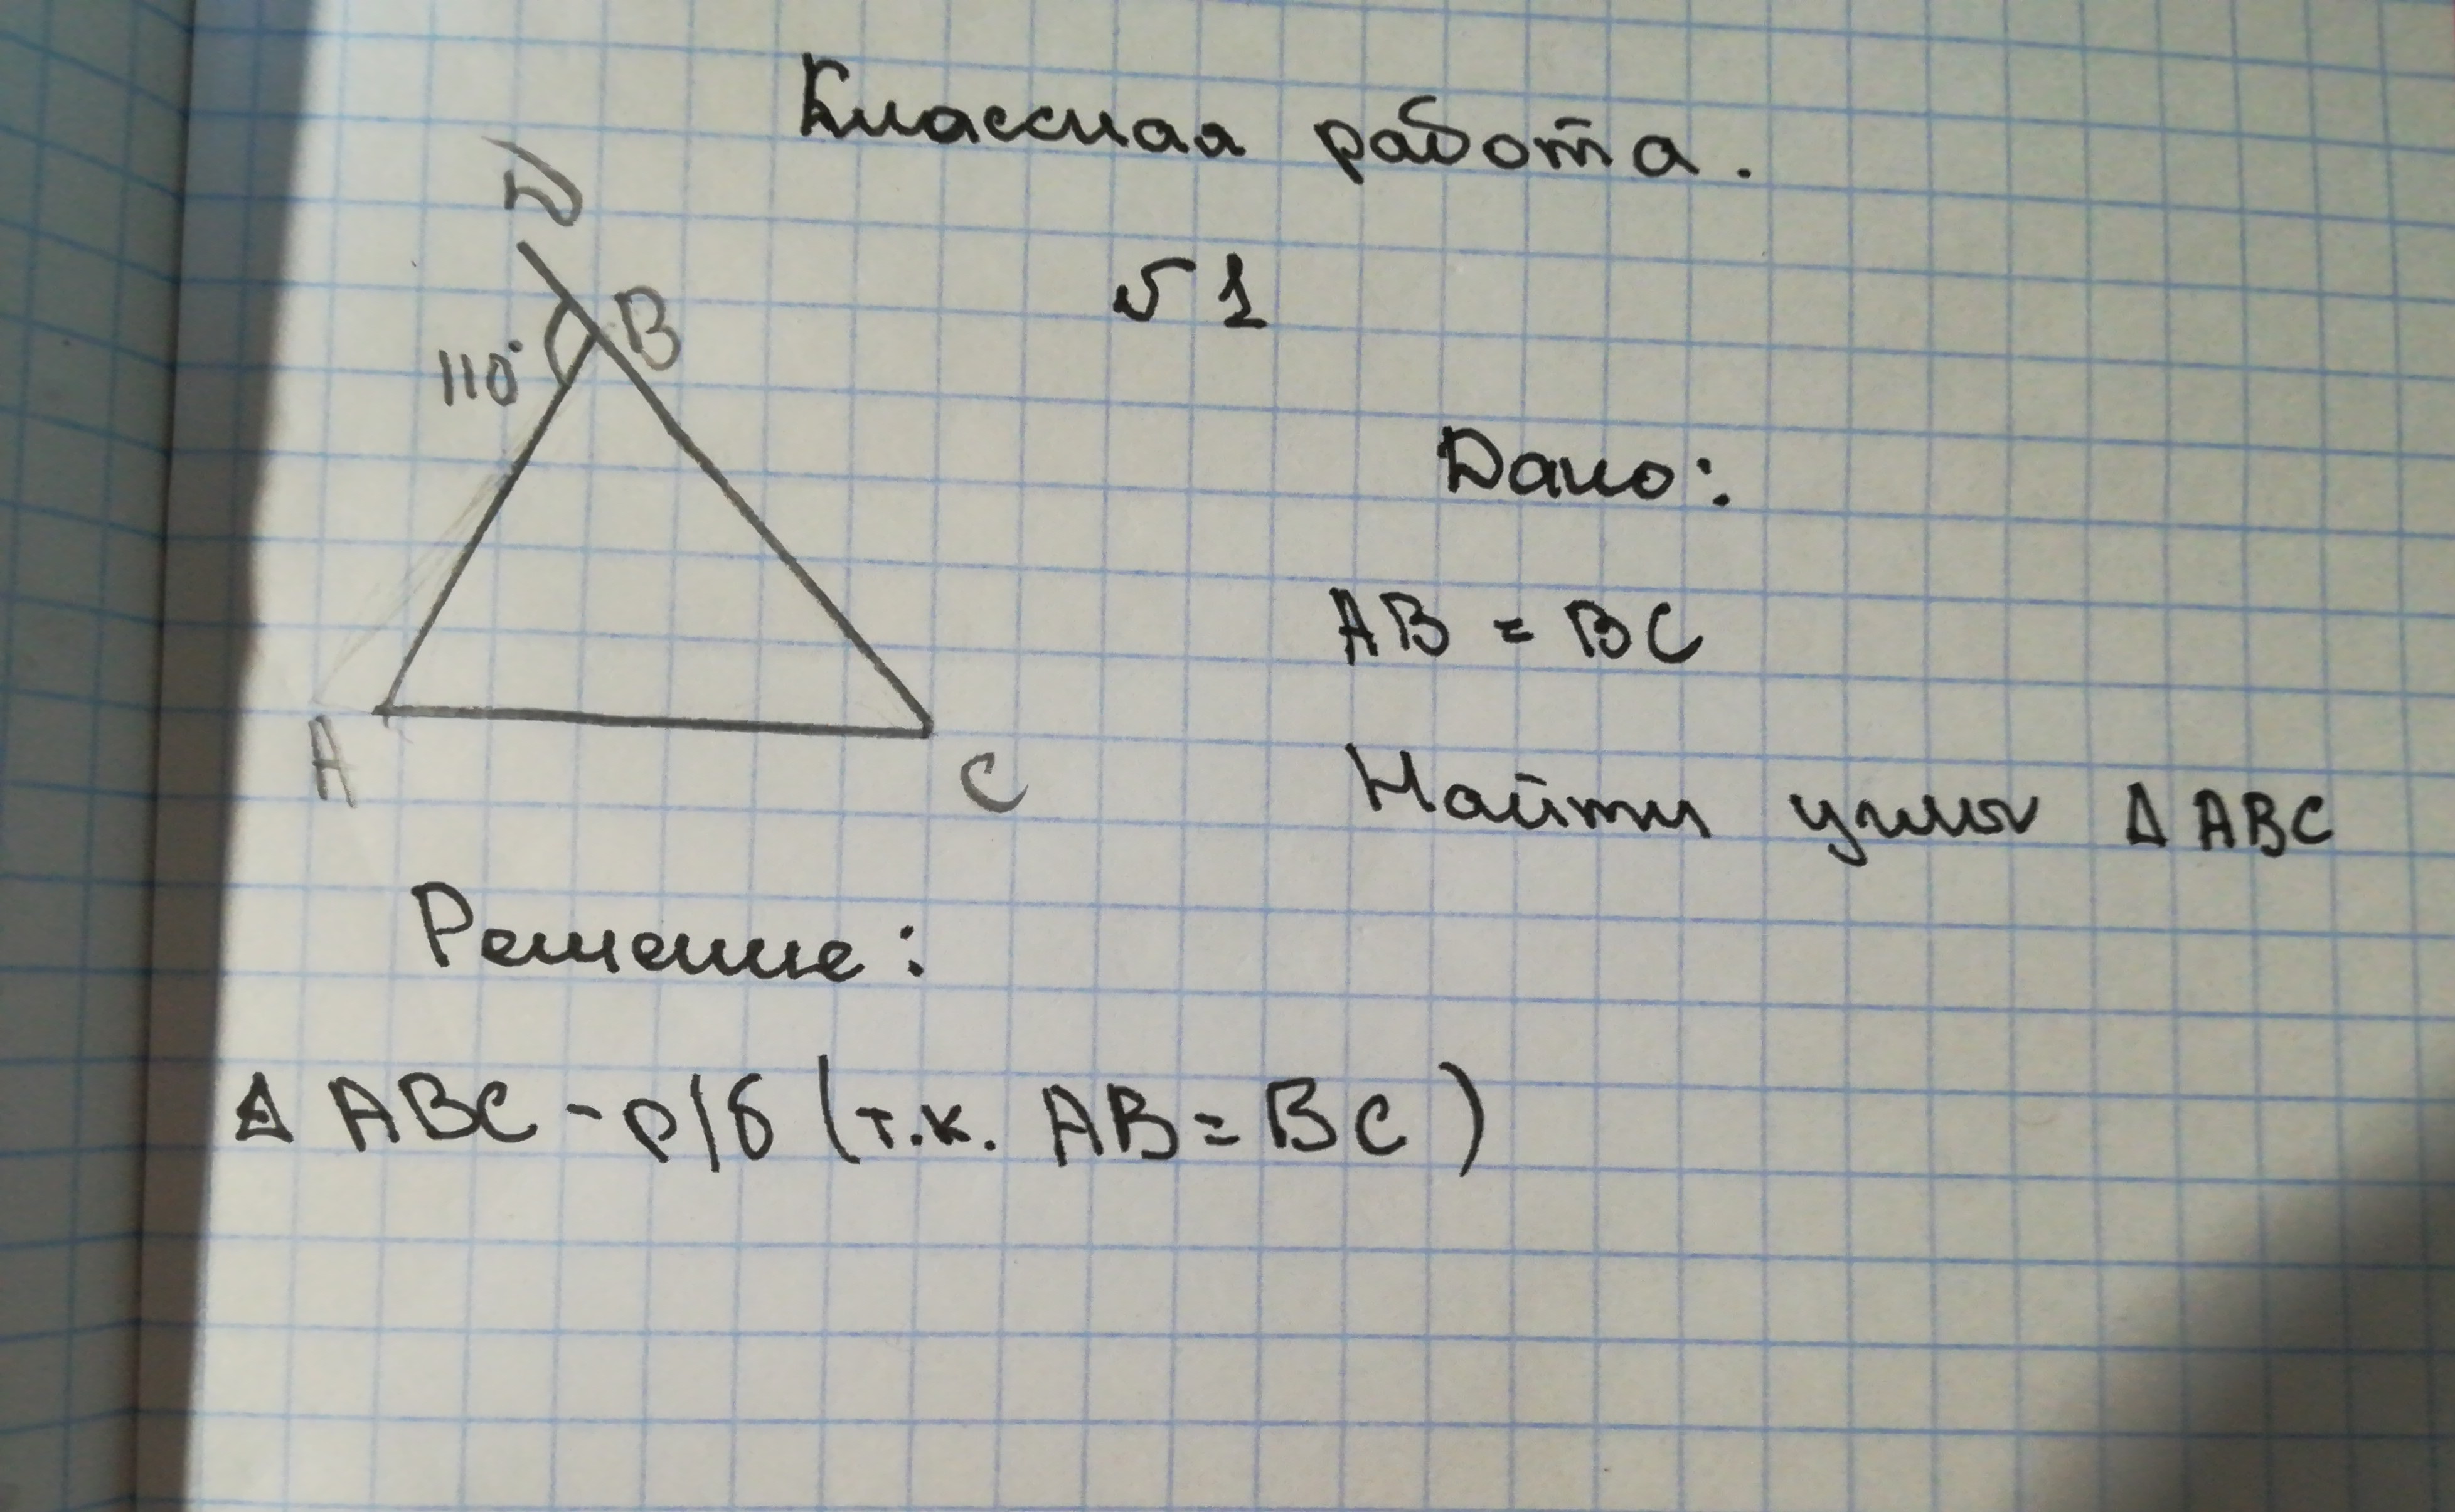 Классная работа.
D
√ 1
B
110°
Дано:
AB = BC
A
C
Найти углы Δ ABC
Решение:
Δ ABC - р/б (т.к. AB = BC)